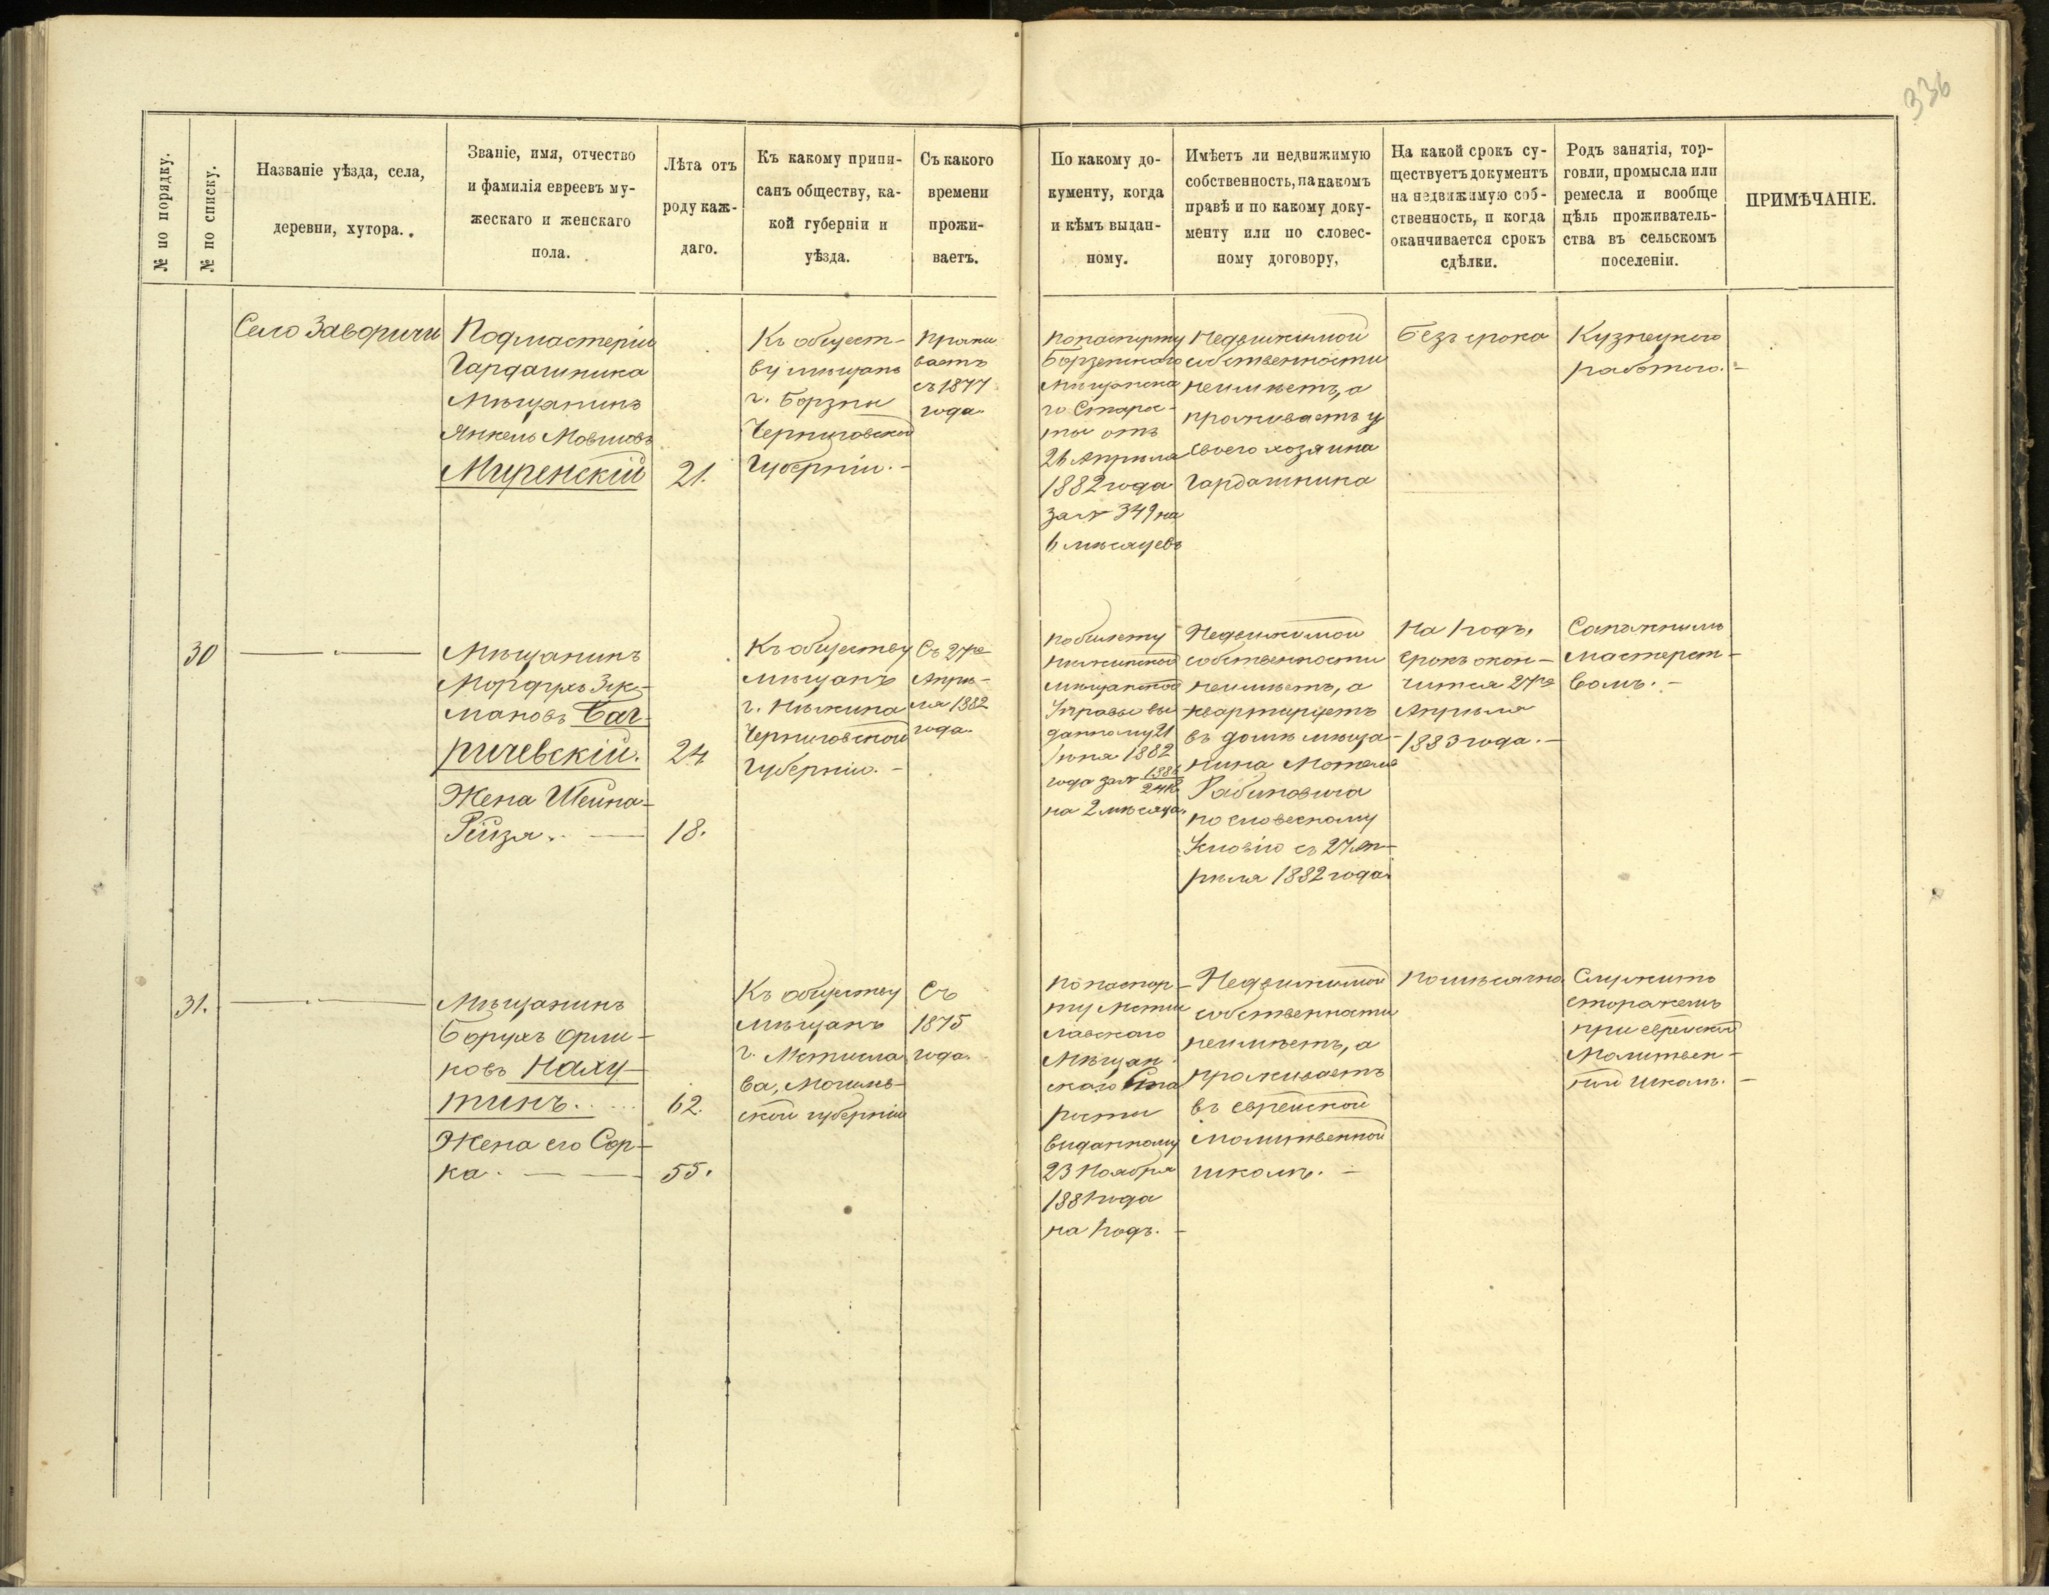 336
№ по порядку.
№ по списку.
Названіе уѣзда, села,
деревни, хутора.
Званіе, имя, отчество
и фамилія евреевъ му-
жескаго и женскаго
пола.
Лѣта отъ
роду каж-
даго.
Къ какому припи-
санъ обществу, ка-
кой губерніи и
уѣзда.
Съ какого
времени
прожи-
ваетъ.
По какому до-
кументу, когда
и кѣмъ выдан-
ному.
Имѣетъ ли недвижимую
собственность, на какомъ
правѣ и по какому доку-
менту или по словес-
ному договору,
На какой срокъ су-
ществуетъ документъ
на недвижимую соб-
ственность, и когда
оканчивается срокъ
сдѣлки.
Родъ занятія, тор-
говли, промысла или
ремесла и вообще
цѣль проживатель-
ства въ сельскомъ
поселеніи.
ПРИМѢЧАНІЕ.
Село Заворичи
Подмастерій
Гардашника
Мѣщанинъ
Янкель Мовшовъ
Миренскій
21.
Къ общест-
ву мѣщанъ
г. Борзны
Черниговской
Губерніи. -
Прожи
ваетъ
съ 1877
года
По паспорту
Борзенскаго
Мѣщанска
го Старос-
ты отъ
26 Апрѣля
1882 года
за № 349 на
6 мѣсяцевъ
Недвижимой
собственности
неимѣетъ, а
проживаетъ у
своего хозяина
Гардашника
Безъ срока
Кузнецкого
работою. -
30
Мѣщанинъ
Мордухъ Зус-
мановъ Баг-
ричевскій.
24
Жена Шейна-
Рейзя.
18.
Къ обществу
мѣщанъ
г. Нѣжина
Черниговской
губерніи. -
Съ 27го
Апрѣ-
ля 1882
года
По билету
Нѣжинской
мѣщанской
Управы вы
данному 21
Іюня 1882
года за №
на 2 мѣсяца.
Недвижимой
собственности
неимѣетъ, а
квартируетъ
въ домѣ мѣща-
нина Мотеля
Рабиновича
по словесному
Условію съ 27 Ап-
рѣля 1882 года
На 1 годъ,
срокъ окон-
чится 27го
Апрѣля
1883 года. -
Сапожнымъ
мастерст-
вомъ. -
31.
Мѣщанинъ
Борухъ Орли-
ковъ Наху-
тинъ.
62.
Жена его Сор-
ка.
55.
Къ обществу
мѣщанъ
г. Мстисла
ва, Могилев-
ской губерніи
Съ
1875
года.
По паспор-
ту Мсти
лавскаго
Мѣщан
скаго Ста
росты
выданному
23 Ноября
1881 года
на 1 годъ. -
Недвижимой
собственности
неимѣетъ, а
проживаетъ
въ еврейской
молитвенной
школѣ. -
Помѣсячно
Служитъ
сторожемъ
при еврейской
Молитвен-
ной школѣ. -